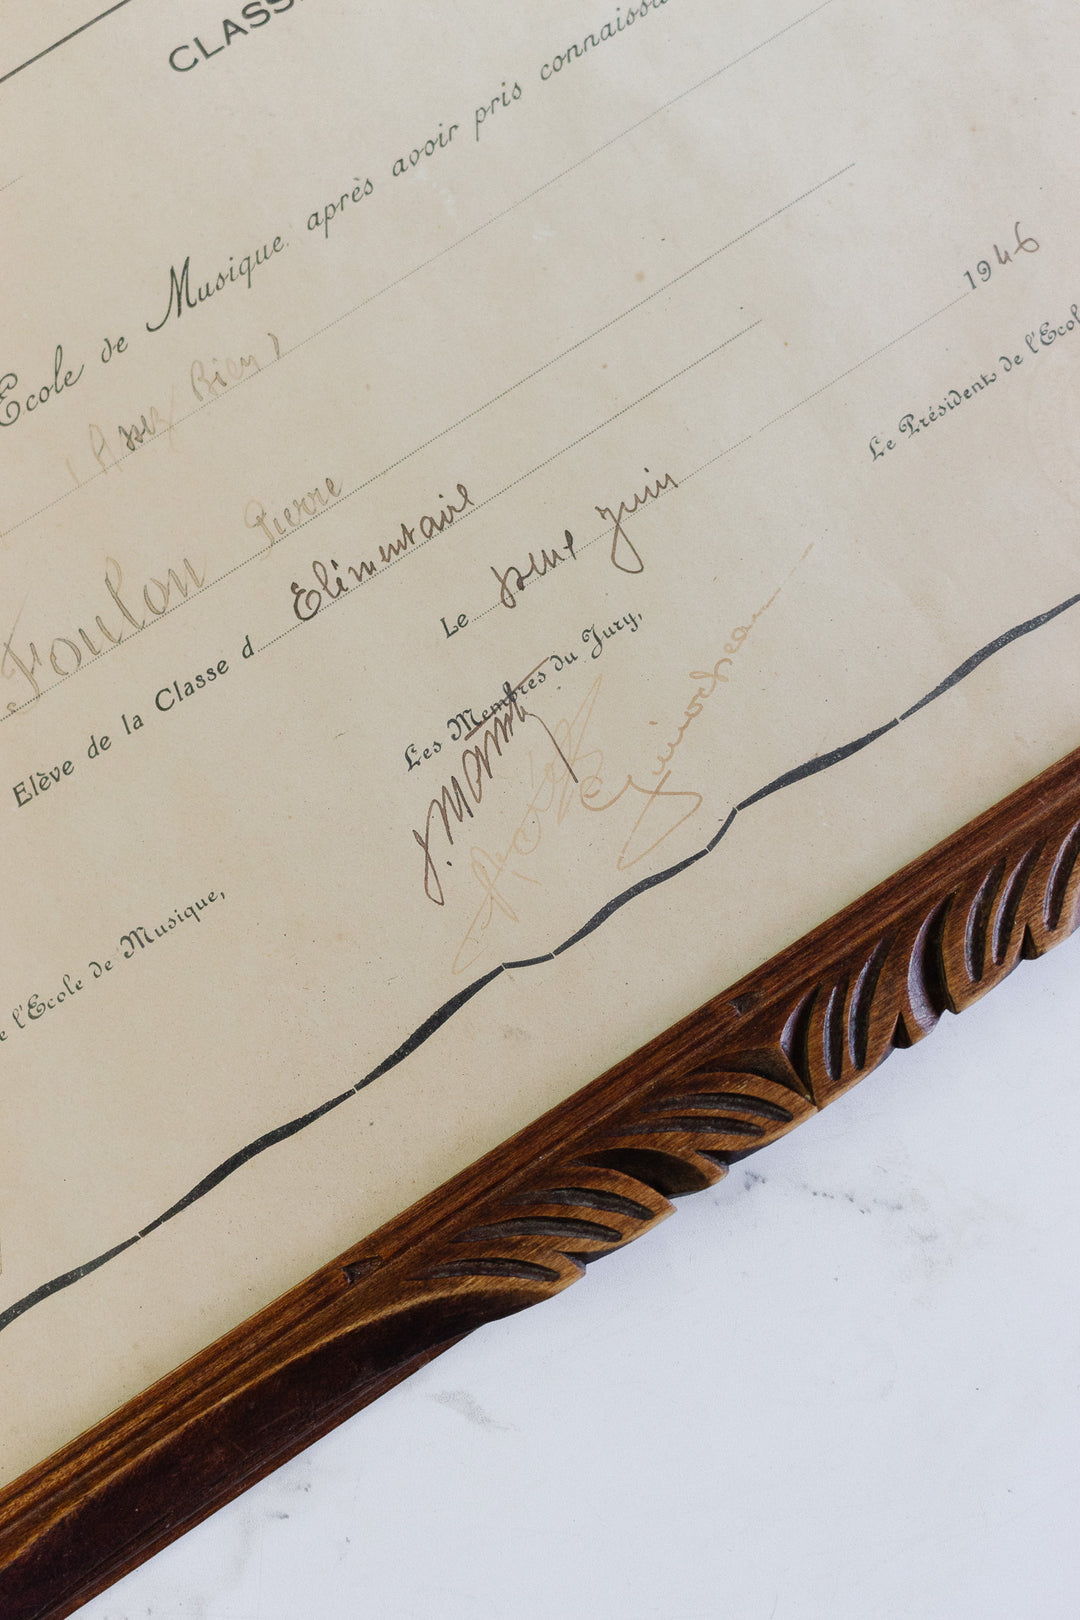 CLASS
Ecole de Musique, après avoir pris connaissa
(Assez Bien)
Foulon Pierre
Elève de la Classe d Elémentaire
Le Juin 1946
Les Membres du Jury,
Le Président de l'Ecol
e l'Ecole de Musique,